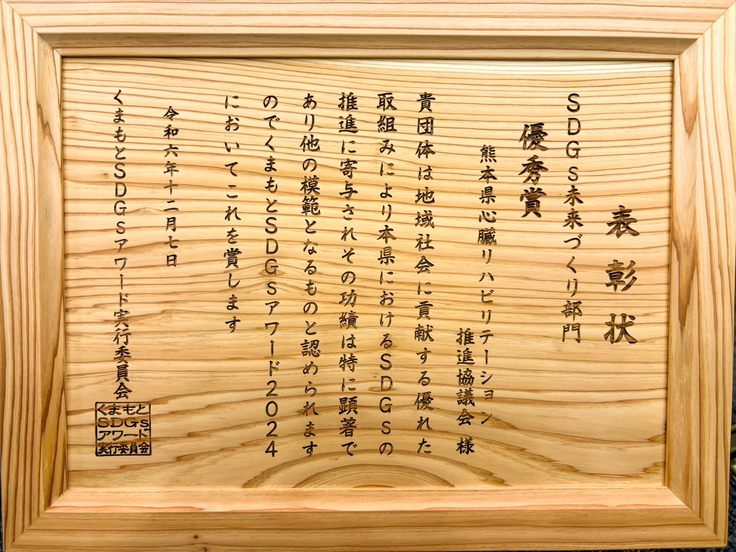 表彰状
SDGs未来づくり部門
優秀賞
熊本県心臓リハビリテーション
推進協議会 様
貴団体は地域社会に貢献する優れた
取組みにより本県におけるSDGsの
推進に寄与されその功績は特に顕著で
あり他の模範となるものと認められます
のでくまもとSDGsアワード2024
においてこれを賞します
令和六年十二月七日
くまもとSDGsアワード実行委員会
くまもと
SDGs
アワード
実行委員会